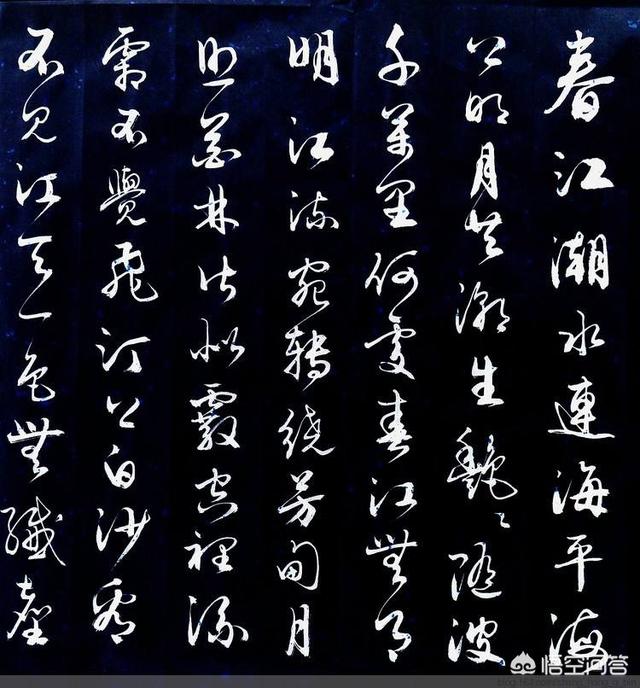 春江潮水連海平海
上明月共潮生艷〻隨波
千萬里何處春江無月
明江流宛轉繞芳甸月
照花林皆似霰空裡流
霜不覺飛汀上白沙看
不見江天一色無纖塵
悟空问答